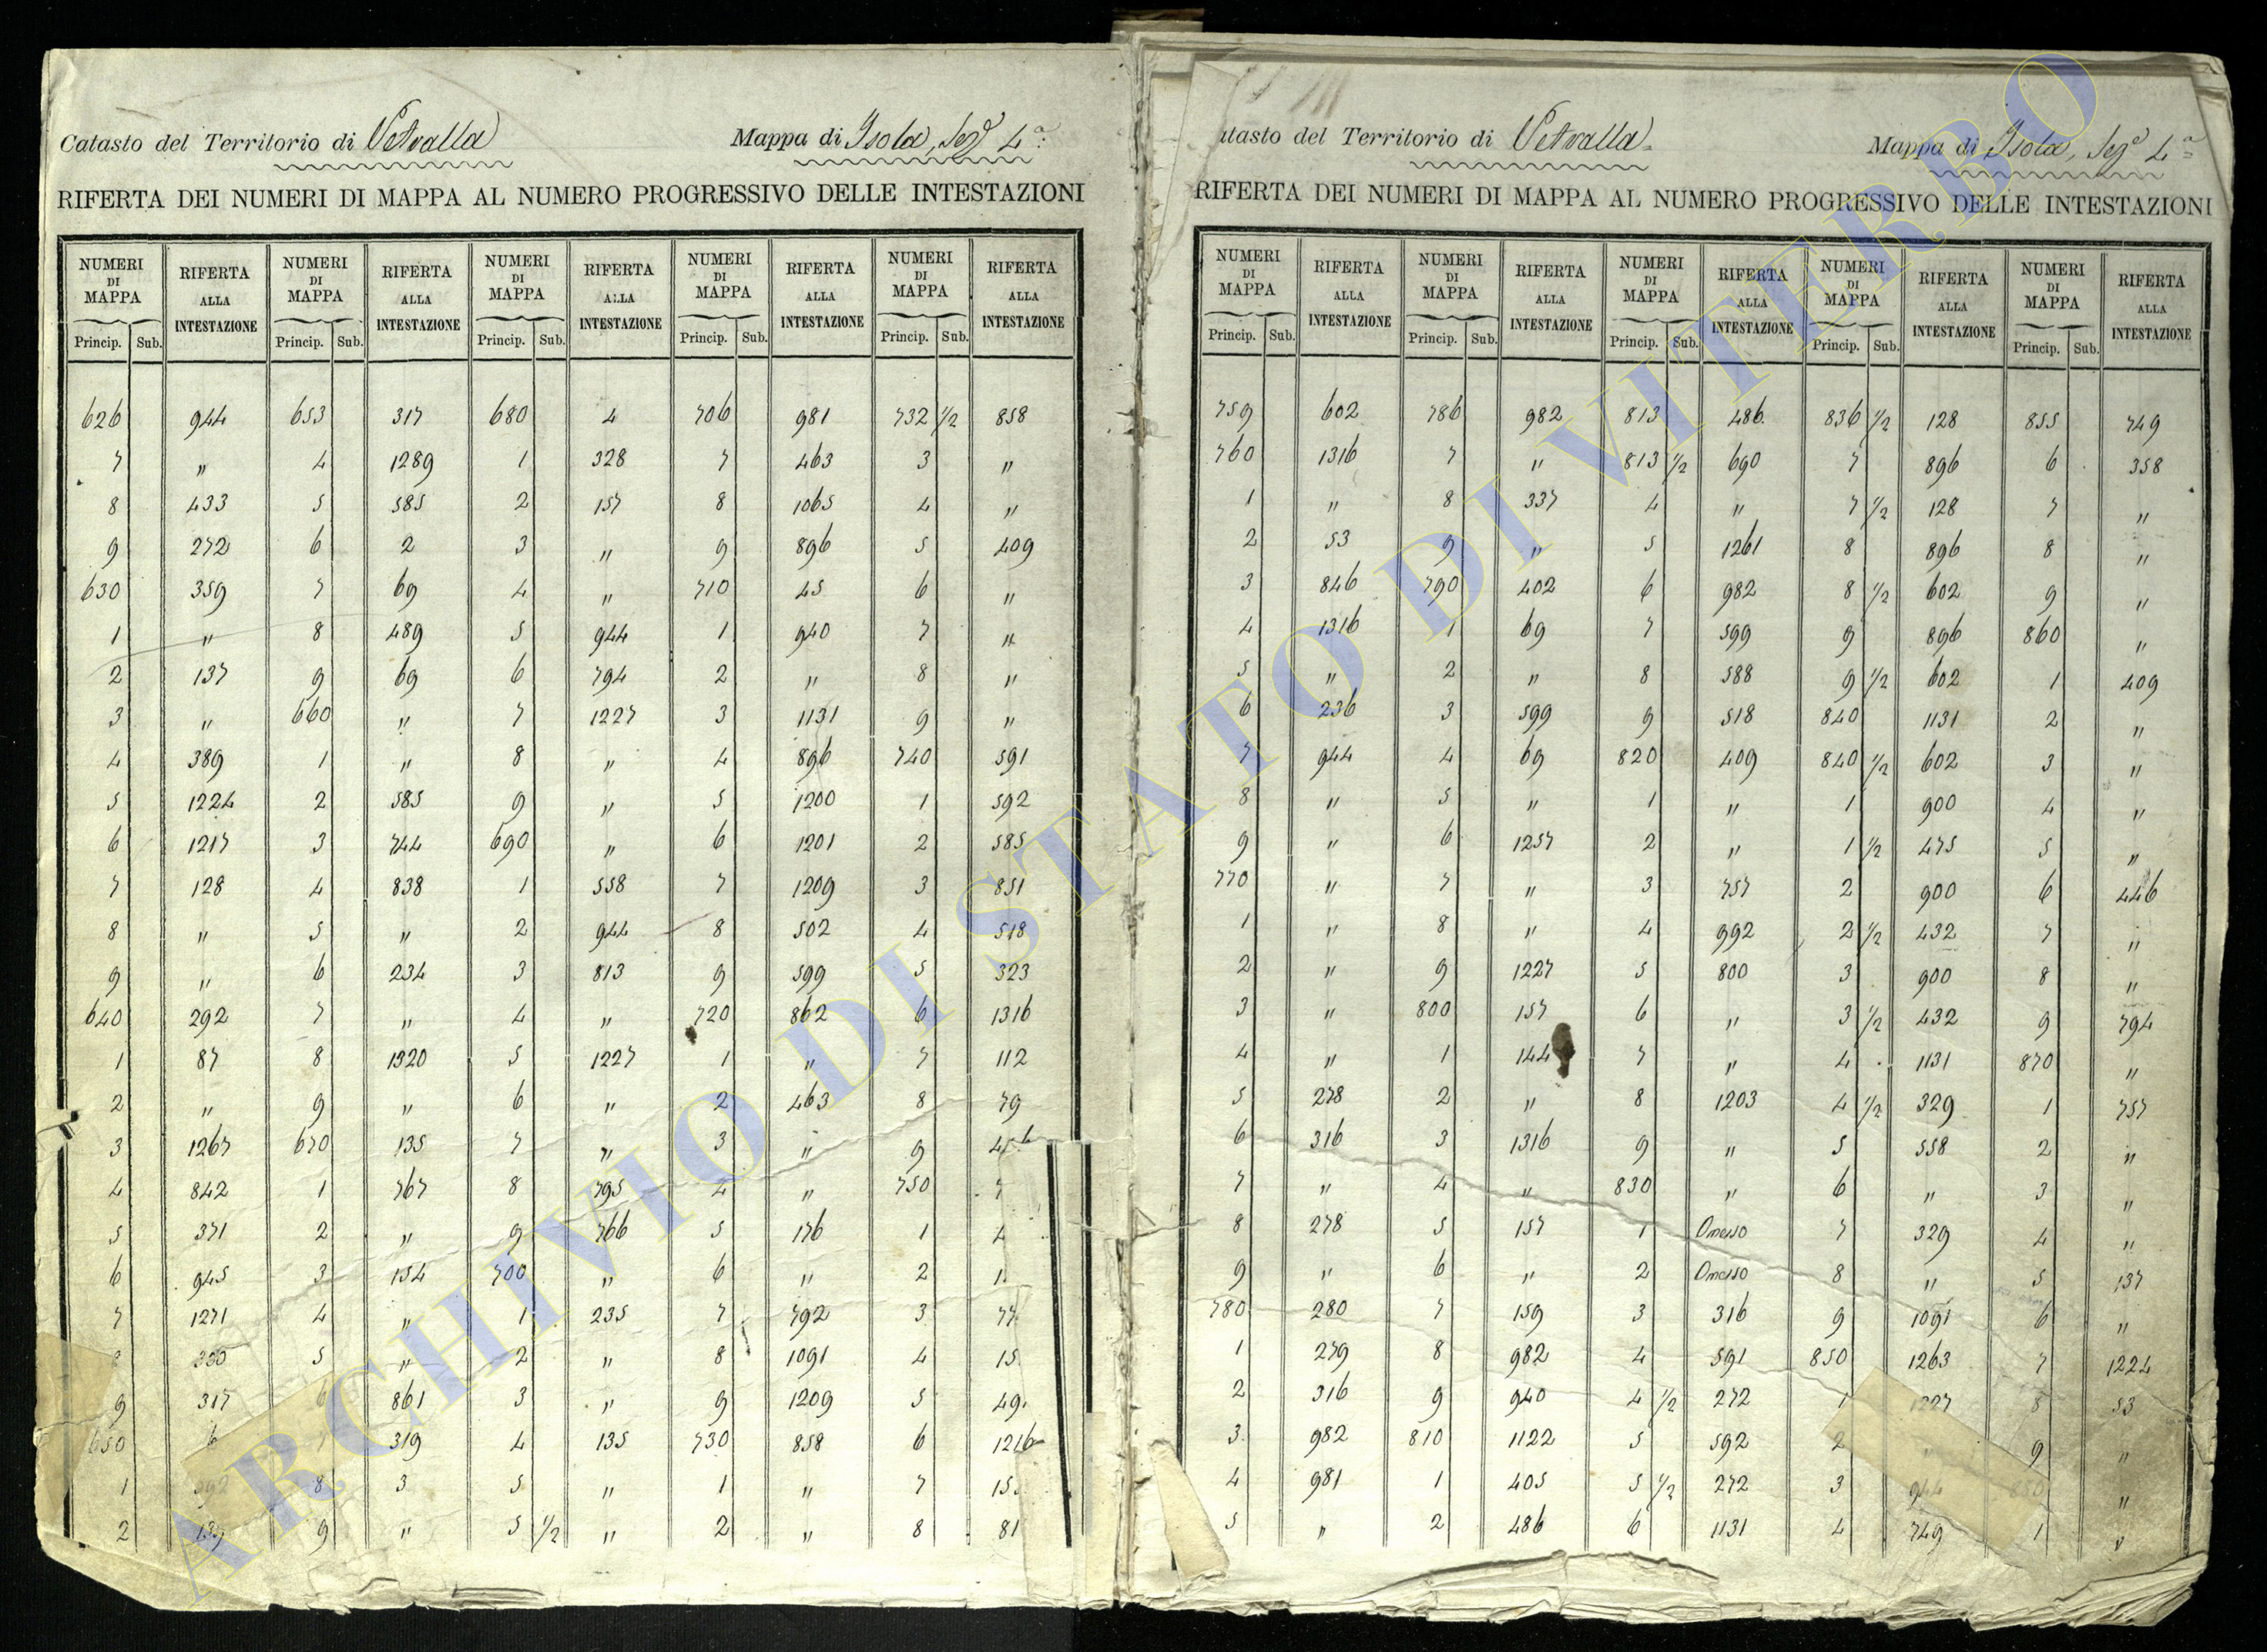 Catasto del Territorio di Vetralla Mappa di Isola, Sez.e 4a
RIFERTA DEI NUMERI DI MAPPA AL NUMERO PROGRESSIVO DELLE INTESTAZIONI
NUMERI DI MAPPA RIFERTA ALLA INTESTAZIONE NUMERI DI MAPPA RIFERTA ALLA INTESTAZIONE NUMERI DI MAPPA RIFERTA ALLA INTESTAZIONE NUMERI DI MAPPA RIFERTA ALLA INTESTAZIONE NUMERI DI MAPPA RIFERTA ALLA INTESTAZIONE
Princip. Sub. Princip. Sub. Princip. Sub. Princip. Sub. Princip. Sub.
626 944 653 317 680 4 706 981 732 1/2 858
7 " 4 1289 1 328 7 463 3 "
8 433 5 585 2 157 8 1065 4 "
9 272 6 2 3 " 9 896 5 409
630 359 7 69 4 " 710 45 6 "
1 " 8 489 5 944 1 940 7 "
2 137 9 69 6 794 2 " 8 "
3 " 660 " 7 1227 3 1131 9 "
4 389 1 " 8 " 4 896 740 591
5 1224 2 585 9 " 5 1200 1 592
6 1217 3 744 690 " 6 1201 2 585
7 128 4 838 1 558 7 1209 3 851
8 " 5 " 2 944 8 502 4 518
9 " 6 234 3 813 9 599 5 323
640 292 7 " 4 " 720 862 6 1316
1 87 8 1320 5 1227 1 " 7 112
2 " 9 " 6 " 2 463 8 79
3 1267 670 135 7 " 3 " 9
4 842 1 767 8 795 4 " 750
5 371 2 " 9 766 5 176 1
6 945 3 154 700 " 6 " 2
7 1271 4 " 1 235 7 792 3
5 " 2 " 8 1091 4
9 317 6 861 3 " 9 1209 5
650 6 7 319 4 135 730 858 6 1216
1 592 8 3 5 " 1 " 7
2 137 9 " 5 1/2 " 2 " 8 81
atasto del Territorio di Vetralla Mappa di Isola, Sez.e 4a
RIFERTA DEI NUMERI DI MAPPA AL NUMERO PROGRESSIVO DELLE INTESTAZIONI
NUMERI DI MAPPA RIFERTA ALLA INTESTAZIONE NUMERI DI MAPPA RIFERTA ALLA INTESTAZIONE NUMERI DI MAPPA RIFERTA ALLA INTESTAZIONE NUMERI DI MAPPA RIFERTA ALLA INTESTAZIONE NUMERI DI MAPPA RIFERTA ALLA INTESTAZIONE
Princip. Sub. Princip. Sub. Princip. Sub. Princip. Sub. Princip. Sub.
759 602 786 982 813 486 836 1/2 128 855 749
760 1316 7 " 813 1/2 690 7 896 6 358
1 " 8 337 4 " 7 1/2 128 7 "
2 53 9 " 5 1261 8 896 8 "
3 846 790 402 6 982 8 1/2 602 9 "
4 1316 1 69 7 599 9 896 860 "
5 " 2 " 8 588 9 1/2 602 1 409
6 236 3 599 9 518 840 1131 2 "
7 944 4 69 820 409 840 1/2 602 3 "
8 " 5 " 1 " 1 900 4 "
9 " 6 1257 2 " 1 1/2 475 5 "
770 " 7 " 3 757 2 900 6 446
1 " 8 " 4 992 2 1/2 432 7 "
2 " 9 1227 5 800 3 900 8 "
3 " 800 157 6 " 3 1/2 432 9 794
4 " 1 144 7 " 4 1131 870 "
5 278 2 " 8 1203 4 1/2 329 1 757
6 316 3 1316 9 " 5 558 2 "
7 " 4 " 830 " 6 " 3 "
8 278 5 157 1 Omesso 7 329 4 "
9 " 6 " 2 Omesso 8 " 5 137
780 280 7 159 3 316 9 1091 6 "
1 279 8 982 4 591 850 1263 7 1224
2 316 9 940 4 1/2 272 1 1227 8 53
3 982 810 1122 5 592 2 " 9 "
4 981 1 405 5 1/2 272 3 944 880 "
5 " 2 486 6 1131 4 749 1 "
ARCHIVIO DI STATO DI VITERBO